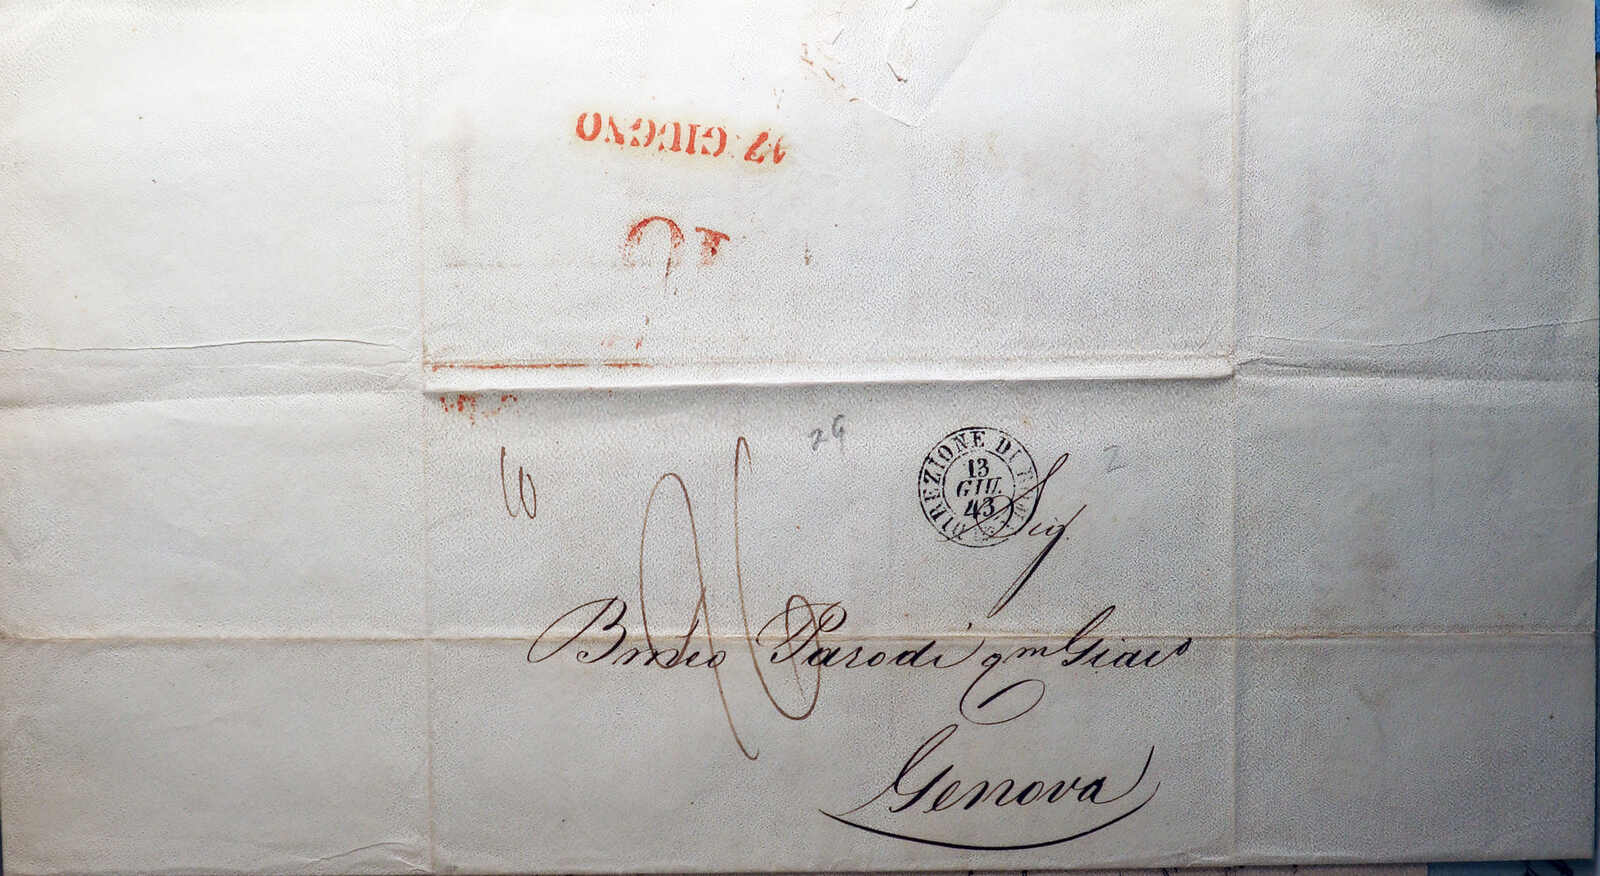 17 GIUGNO
10
10
26
29
2
DIREZIONE DI
13
GIU.
43
Sig.
Bmeo Parodi qm Giaco
Genova